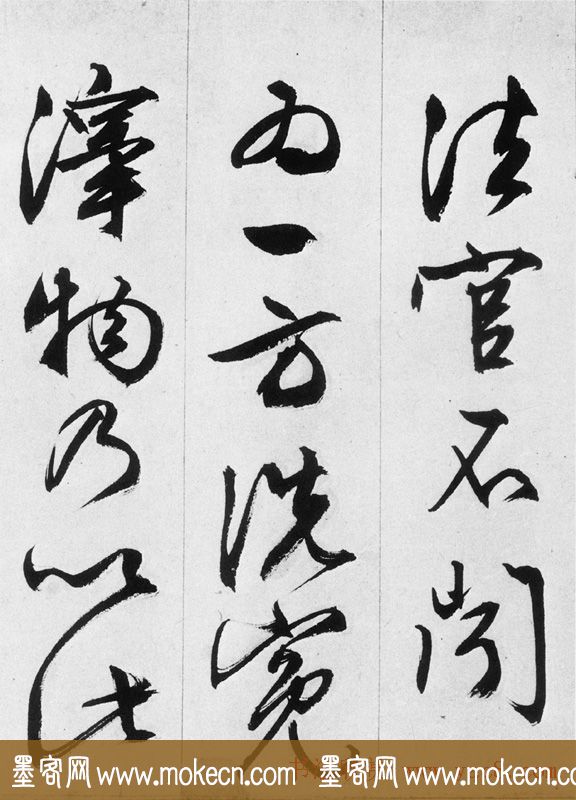 法官不聞
為一方洗冤
澤物乃以
墨客网 www.mokecn.com 墨客网 www.mokecn.com